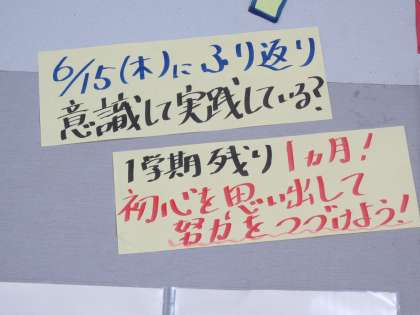 6/15(木)にふり返り
意識して実践している?
1学期残り1ヵ月!
初心を思い出して
努力をつづけよう!